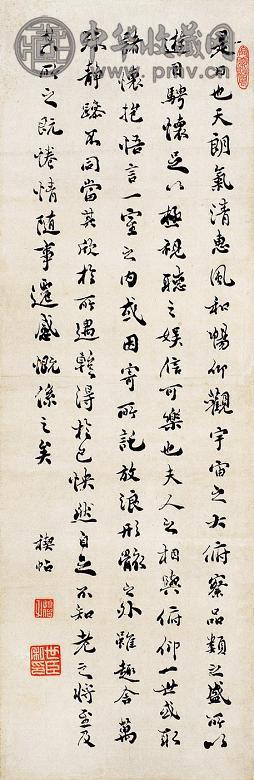 中华收藏网
是日也天朗氣清惠風和暢仰觀宇宙之大俯察品類之盛所以
遊目騁懷足以極視聽之娛信可樂也夫人之相與俯仰一世或取
諸懷抱悟言一室之內或因寄所託放浪形骸之外雖趣舍萬
殊靜躁不同當其欣於所遇暫得於己快然自足不知老之將至及
其所之既惓情隨事遷感慨係之矣
禊帖